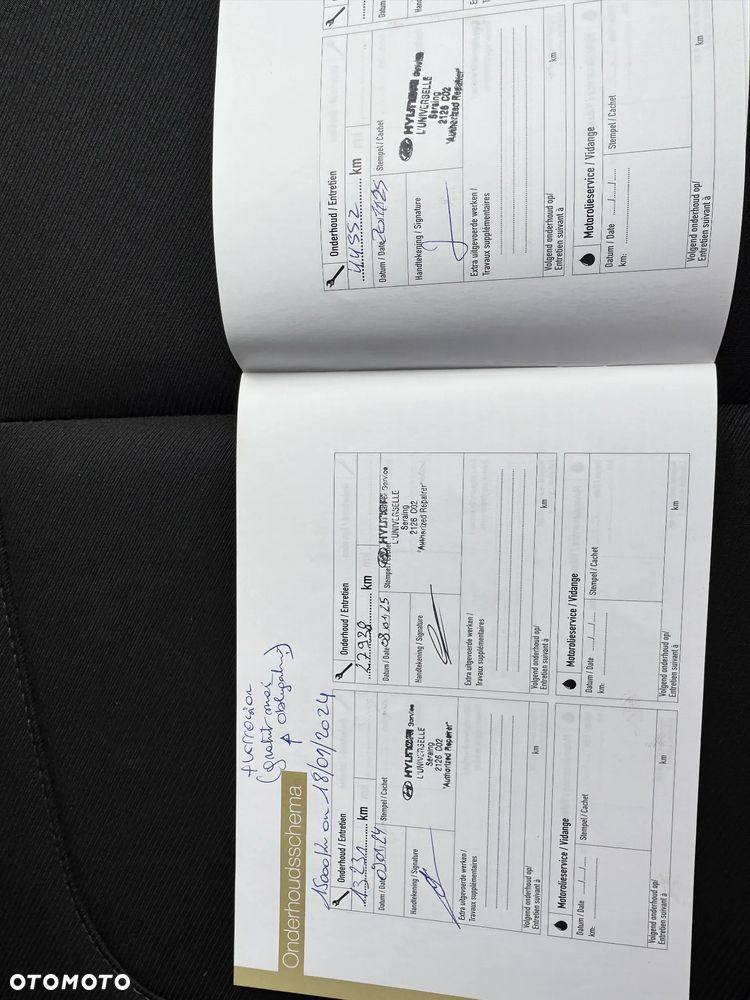 Onderhoudsschema
+ corrosion
(gratuit mais
obligatoire)
15000Km ou 18/01/2024
Onderhoud / Entretien
13.231 km
Datum / Date
Stempel / Cachet
HYUNDAI Service
L'UNIVERSELLE
Seraing
2126 C02
"Authorized Repairer"
Handtekening / Signature
Extra uitgevoerde werken /
Travaux supplémentaires
Volgend onderhoud op/
Entretien suivant à
km
Motorolieservice / Vidange
Datum / Date ..../..../....
Stempel / Cachet
km:
Volgend onderhoud op/
Entretien suivant à
km
Onderhoud / Entretien
km
Datum / Date 08.01.25
Stempel / Cachet
HYUNDAI Service
L'UNIVERSELLE
Seraing
2126 C02
"Authorized Repairer"
Handtekening / Signature
Extra uitgevoerde werken /
Travaux supplémentaires
Volgend onderhoud op/
Entretien suivant à
km
Motorolieservice / Vidange
Datum / Date ..../..../....
Stempel / Cachet
km:
Volgend onderhoud op/
Entretien suivant à
km
Onderhoud / Entretien
44.552 km
Datum / Date
Stempel / Cachet
HYUNDAI Service
L'UNIVERSELLE
Seraing
2126 C02
"Authorized Repairer"
Handtekening / Signature
Extra uitgevoerde werken /
Travaux supplémentaires
Volgend onderhoud op/
Entretien suivant à
km
Motorolieservice / Vidange
Datum / Date ..../..../....
Stempel / Cachet
km:
Volgend onderhoud op/
Entretien suivant à
km
OTOMOTO